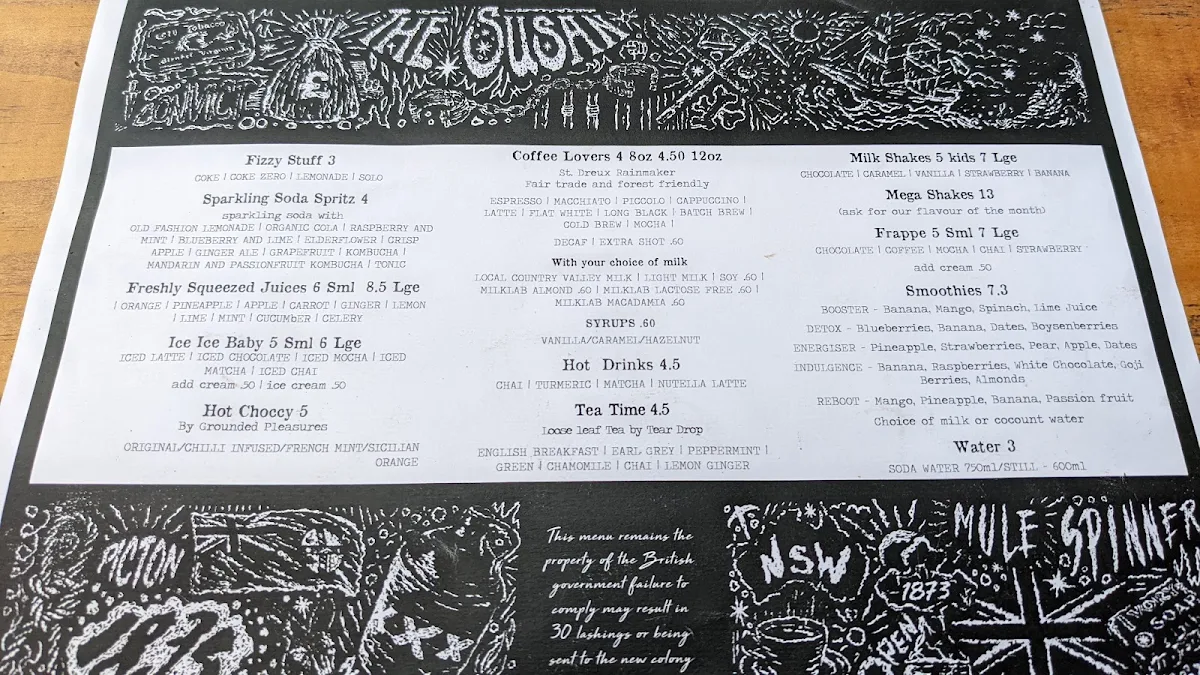 Gold Tobacco
THE SUSAN
CONVICT
£
Fizzy Stuff 3
COKE | COKE ZERO | LEMONADE | SOLO
Sparkling Soda Spritz 4
sparkling soda with
OLD FASHION LEMONADE | ORGANIC COLA | RASPBERRY AND
MINT | BLUEBERRY AND LIME | ELDERFLOWER | CRISP
APPLE | GINGER ALE | GRAPEFRUIT | KOMBUCHA |
MANDARIN AND PASSIONFRUIT KOMBUCHA | TONIC
Freshly Squeezed Juices 6 Sml 8.5 Lge
| ORANGE | PINEAPPLE | APPLE | CARROT | GINGER | LEMON
| LIME | MINT | CUCUMbER | CELERY
Ice Ice Baby 5 Sml 6 Lge
ICED LATTE | ICED CHOCOLATE | ICED MOCHA | ICED
MATCHA | ICED CHAI
add cream .50 | ice cream .50
Hot Choccy 5
By Grounded Pleasures
ORIGINAL/CHILLI INFUSED/FRENCH MINT/SICILIAN
ORANGE
Coffee Lovers 4 8oz 4.50 12oz
St. Dreux Rainmaker
Fair trade and forest friendly
ESPRESSO | MACCHIATO | PICCOLO | CAPPUCCINO |
LATTE | FLAT WHITE | LONG BLACK | BATCH BREW |
COLD BREW | MOCHA |
DECAF | EXTRA SHOT .60
With your choice of milk
LOCAL COUNTRY VALLEY MILK | LIGHT MILK | SOY .60 |
MILKLAB ALMOND .60 | MILKLAB LACTOSE FREE .60 |
MILKLAB MACADAMIA .60
SYRUPS .60
VANILLA/CARAMEL/HAZELNUT
Hot Drinks 4.5
CHAI | TURMERIC | MATCHA | NUTELLA LATTE
Tea Time 4.5
Loose leaf Tea by Tear Drop
ENGLISH BREAKFAST | EARL GREY | PEPPERMINT |
GREEN | CHAMOMILE | CHAI | LEMON GINGER
Milk Shakes 5 kids 7 Lge
CHOCOLATE | CARAMEL | VANILLA | STRAWBERRY | BANANA
Mega Shakes 13
(ask for our flavour of the month)
Frappe 5 Sml 7 Lge
CHOCOLATE | COFFEE | MOCHA | CHAI | STRAWBERRY
add cream .50
Smoothies 7.3
BOOSTER - Banana, Mango, Spinach, lime Juice
DETOX - Blueberries, Banana, Dates, Boysenberries
ENERGISER - Pineapple, Strawberries, Pear, Apple, Dates
INDULGENCE - Banana, Raspberries, White Chocolate, Goji
Berries, Almonds
REBOOT - Mango, Pineapple, Banana, Passion fruit
Choice of milk or cocount water
Water 3
SODA WATER 750ml/STILL - 600ml
PICTON
XXX
This menu remains the
property of the British
government failure to
comply may result in
30 lashings or being
sent to the new colony
NSW
1873
MULE SPINNER
SOAP